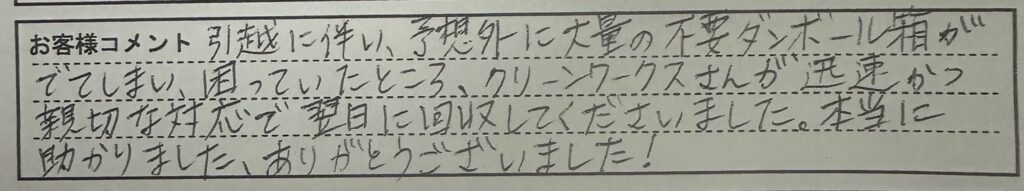 お客様コメント 引越に伴い、予想外に大量の不要ダンボール箱が
でてしまい、困っていたところ、クリーンワークスさんが迅速かつ
親切な対応で翌日に回収してくださいました。本当に
助かりました、ありがとうございました!